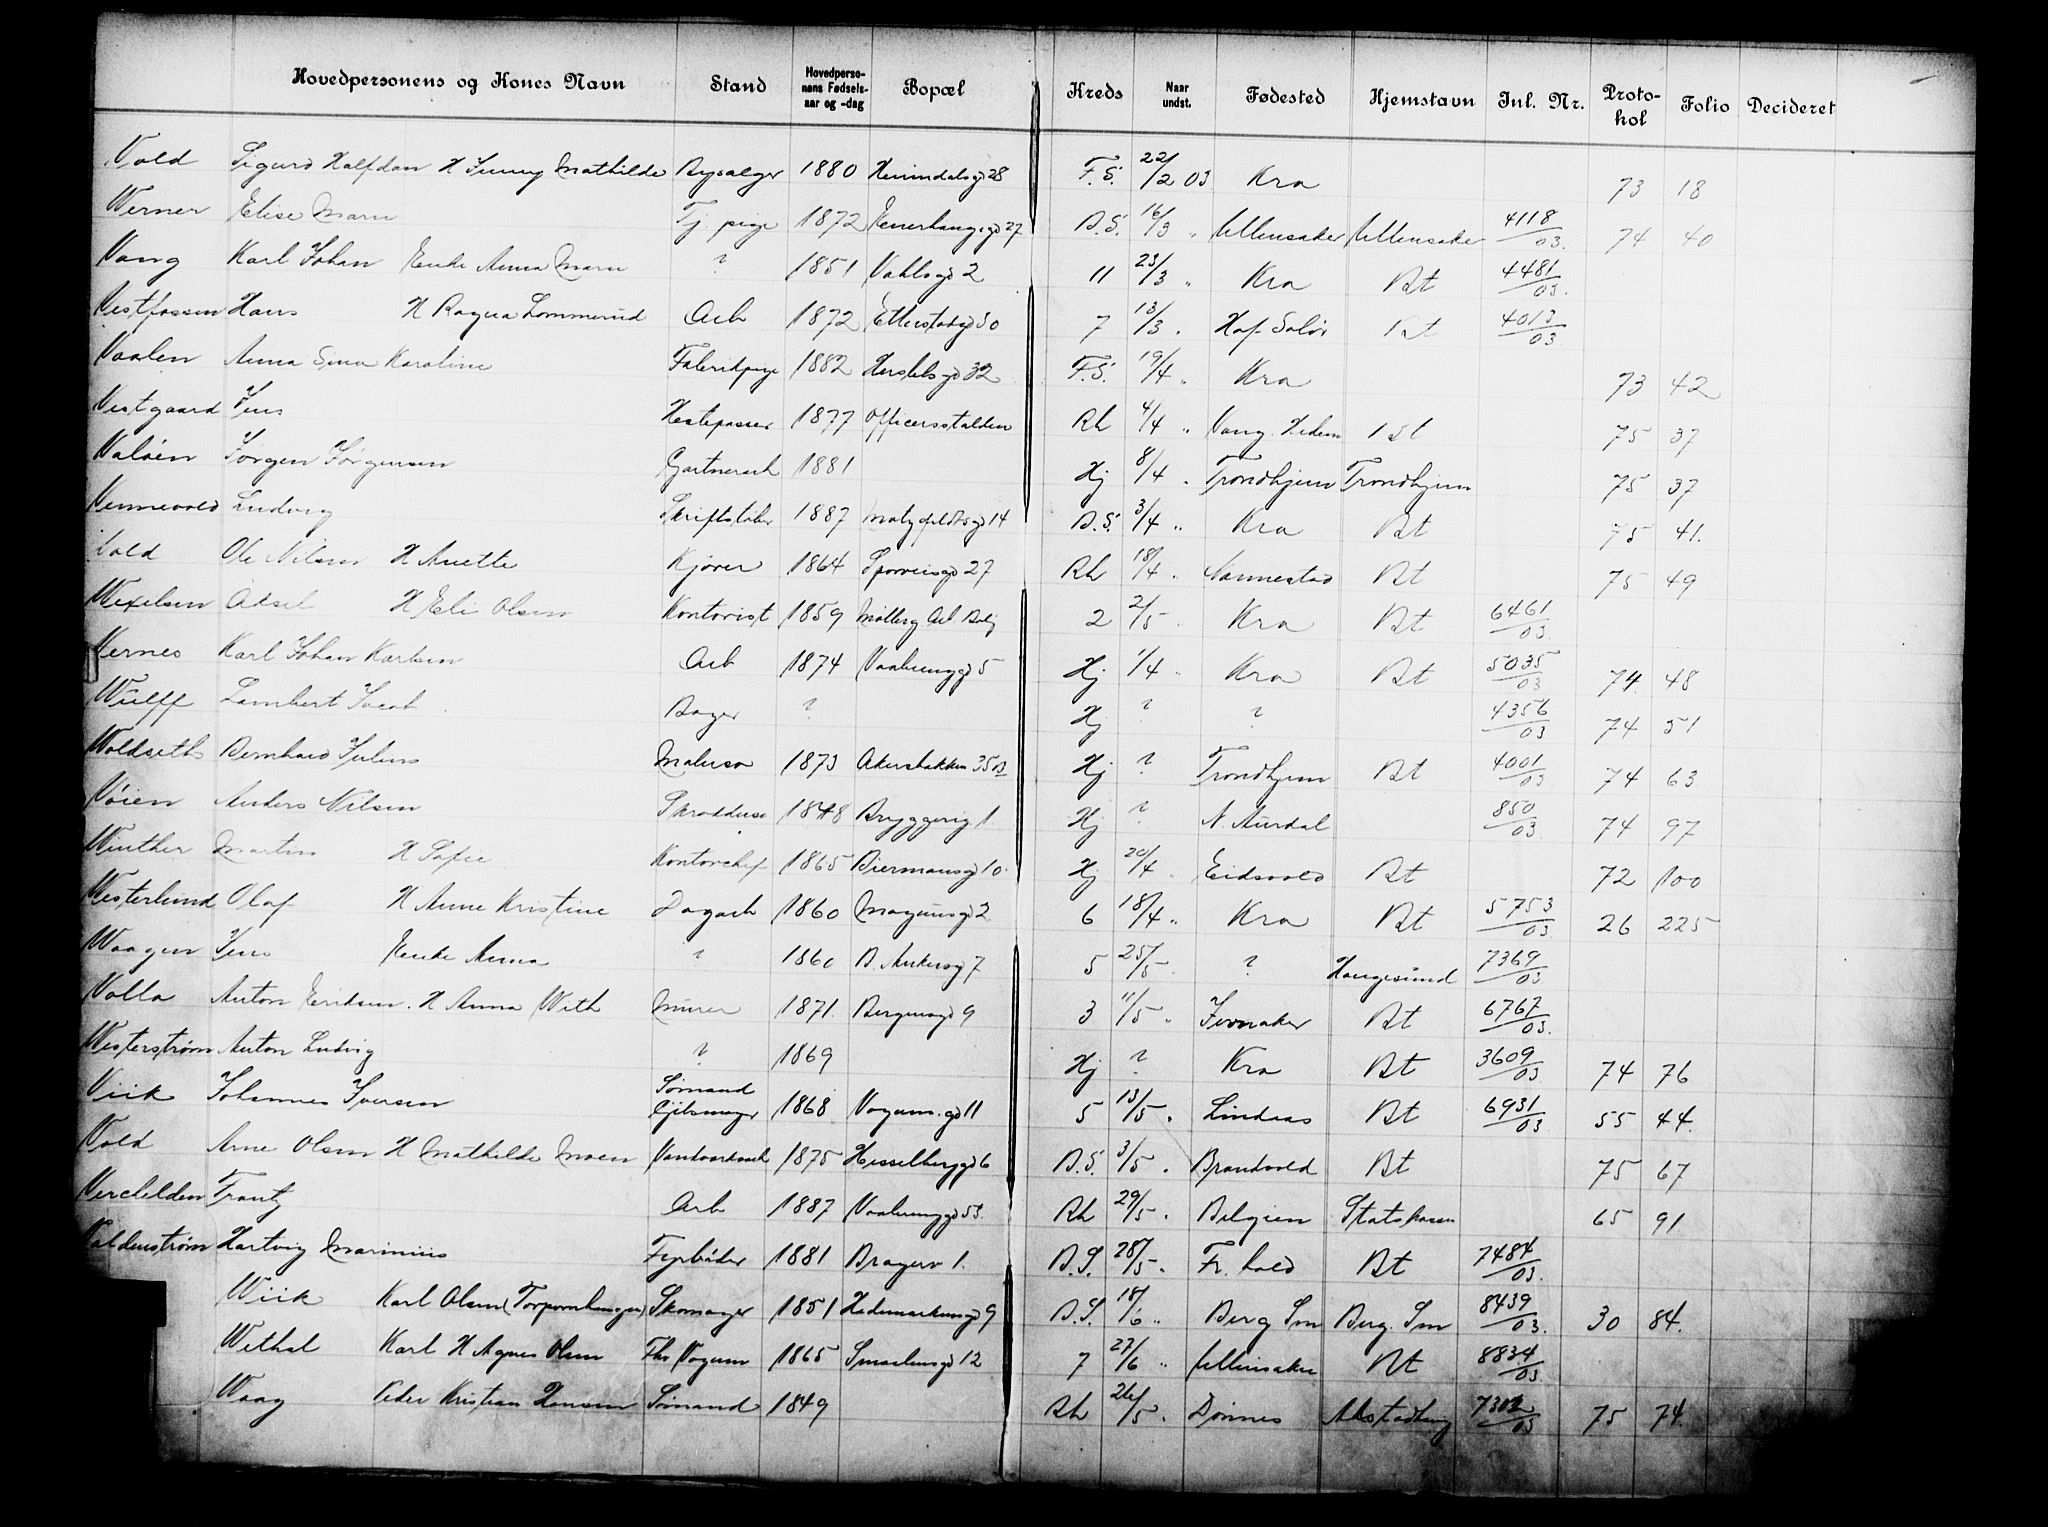 Hovedpersonens og Kones Navn Stand Hovedperso-nens Fødsels-aar og -dag Bopæl Kreds Naar undst. Fødested Hjemstavn Inl. Nr. Proto-kol Folio Decideret
Vold Sigurd Halfdan H Jenny Mathilde Bysælger 1880 Heimdalsgd 28 F.S. 22/2 03 Kra 73 18
Werner Elise Marie Tj. pige 1872 27 B.S. 16/3 " Ullensaker Ullensaker 4118/03. 74 40
Vang Karl Johan Enke Anna Marie ? 1851 Vahlsgd 2 11 23/3 " Kra Bt 4481/03.
Vestfossen Hans H Ragna Lommerud Arb 1872 Etterstadgd 30 7 13/3 " Hof. Solør Bt 4013/03
Vaalen Anna Sina Karoline Fabrikpige 1882 Herslebsgd 32 F.S. 19/4 " Kra 73 42
Vestgaard Jens Hestepasser 1877 Officersstalden Rh 4/4 " Vang. Hedem Bt 75 37
Valøen Jørgen Jørgensen Gartnerarb 1881 Hj 8/4 " Trondhjem Trondhjem 75 37
Vennevold Ludvig Skriftstøber 1887 14 B.S. 3/4 " Kra Bt 75 41.
Vold Ole Nilsen H Anette Kjører 1864 Sporveisgd 27 Rh 18/4 " Nannestad Bt 75 49
Wexelsen Aksel H Eli Olsen Kontorist 1859 Møllerg Arb. Bolig 2 2/5 " Kra Bt 6461/03.
Vernes Karl Johan Karlsen Arb 1874 Vaalerenggd 5 Hj 1/4 " Kra Bt 5035/03 74. 48
Wulff Lambert Jacob Bager ? Hj ? ? 4356/03 74 51
Woldseth Bernhard Julius Malersv 1873 Akersbakken 35 B Hj ? Trondhjem Bt 4001/03 74 63
Vøien Anders Nilsen Skræddersv 1848 Bryggerig 1 Hj ? N. Aurdal 850/03. 74 97
Winther Martin H Sofie Kontorchef 1865 Biermansgd 10 Hj 20/4 " Eidsvold Bt 72 100
Westerlund Olaf H Anne Kristine Dagarb 1860 Magnusgd 2 6 18/4 " Kra Bt 5753/03 26 225
Waagen Jens Enke Anna ? 1860 B. Ankersg 7 5 25/5 " ? Haugesund 7369/03
Volla Anton Eriksen. H Anna With Murer 1871. Bergensgd 9 3 11/5 " Jevnaker Bt 6767/03.
Westerstrøm Anton Ludvig ? 1869 Hj ? Kra Bt 3609/03 74 76
Viik Johannes Iversen Sømand Gjibsmager 1868 Vognm.gd 11 5 13/5 " Lindaas Bt 6931/03 55 44.
Vold Arne Olsen H Mathilde Moen Vandværksarb 1875 Hesselberggd 6 B.S. 3/5 " Brandvold Bt 75 67
Verchelden Frantz Arb 1887 Vaalerenggd 53 Rh 29/5 " Belgien Statskassen 65 91
Valdenstrøm Hartvig Marinius Fyrbøder 1881 Bragerv 1. B.S. 28/5 " Fr. hald Bt 7484/03.
Wiik Karl Olsen (Torpornhaugen) Skomager 1851 Hedemarkensgd 9 B.S. 18/6 " Berg Sm Berg. Sm 8439/03. 30 84.
Wethal Karl H Agnes Olsen Fhv Vognm 1865 Smaalensgd 12 7 27/6 " Ullensaker Bt 8834/03.
Waag Peder Kristian Hansen Sømand 1849 Rh 26/5 " Dønnes Alstadhaug 7302/03 75 74.